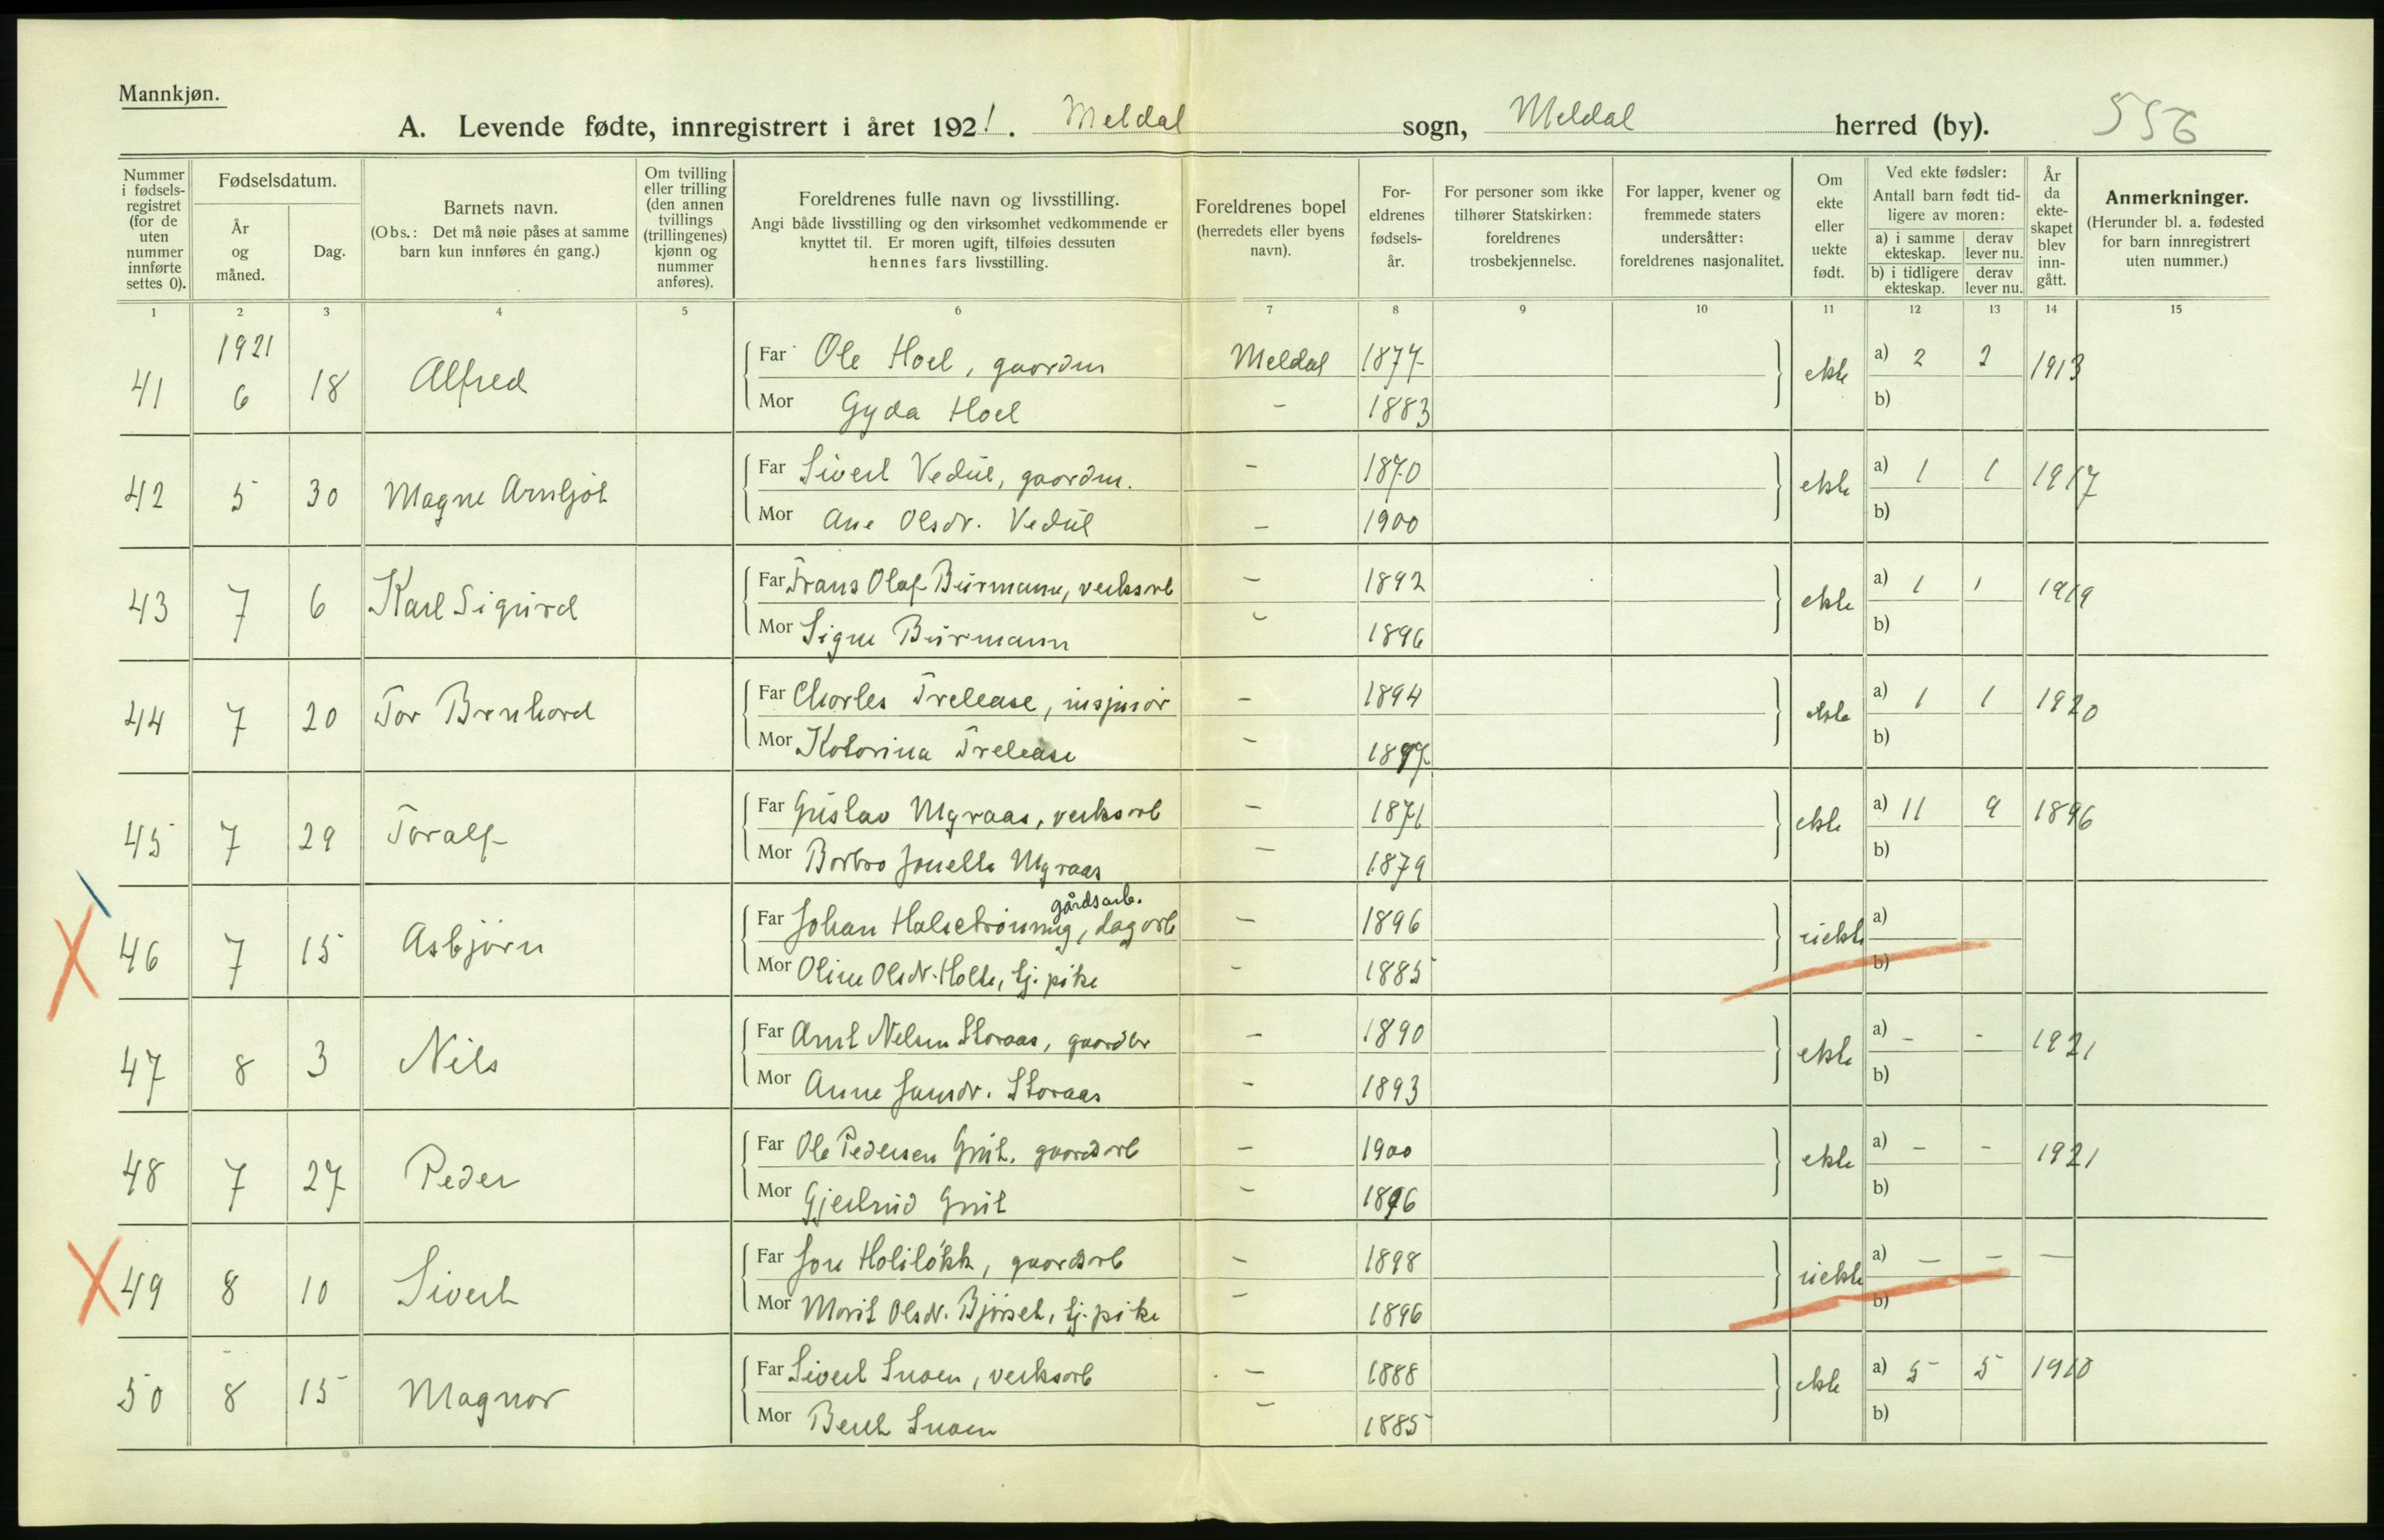 Mannkjøn.
A. Levende fødte, innregistrert i året 1921. Meldal sogn, Meldal herred (by). 556
Nummer i fødsels-registret (for de uten nummer innførte settes 0).
Fødselsdatum.
År og måned.
Dag.
Barnets navn.
(Obs.: Det må nøie påses at samme barn kun innføres én gang.)
Om tvilling eller trilling (den annen tvillings (trillingenes) kjønn og nummer anføres).
Foreldrenes fulle navn og livsstilling.
Angi både livsstilling og den virksomhet vedkommende er knyttet til. Er moren ugift, tilføies dessuten hennes fars livsstilling.
Foreldrenes bopel (herredets eller byens navn).
For-eldrenes fødsels-år.
For personer som ikke tilhører Statskirken: foreldrenes trosbekjennelse.
For lapper, kvener og fremmede staters undersåtter: foreldrenes nasjonalitet.
Om ekte eller uekte født.
Ved ekte fødsler: Antall barn født tid-ligere av moren:
a) i samme ekteskap. derav lever nu.
b) i tidligere ekteskap. derav lever nu.
År da ekte-skapet blev inn-gått.
Anmerkninger.
(Herunder bl. a. fødested for barn innregistrert uten nummer.)
1 2 3 4 5 6 7 8 9 10 11 12 13 14 15
1921
41 6 18 Alfred Far Ole Hoel, gaardm Meldal 1877 ekte a) 2 2 1913
Mor Gyda Hoel - 1883 b)
42 5 30 Magne Arnljot Far Sivert Vedul, gaardm. - 1870 ekte a) 1 1 1917
Mor Ane Olsdr. Vedul - 1900 b)
43 7 6 Karl Sigurd Far Frans Olaf Burmann, verksarb - 1892 ekte a) 1 1 1919
Mor Signe Burmann - 1896 b)
44 7 20 Tor Bernhard Far Charles Trelease, insjiniør - 1894 ekte a) 1 1 1920
Mor Katarina Trelease - 1897 b)
45 7 29 Toralf Far Gustav Mgraas, verksarb - 1871 ekte a) 11 9 1896
Mor Barbro Jonetta Mgraas - 1879 b)
gårdsarb.
X 46 7 15 Asbjørn Far Johan Halsetrønning, dagarb - 1896 uekte a)
Mor Oline Olsdr. Holte, tj. pike - 1885 b)
47 8 3 Nils Far Arnt Nelsen Storaas, gaardbr - 1890 ekte a) - - 1921
Mor Anne Jansdr. Storaas - 1893 b)
48 7 27 Peder Far Ole Pedersen Grut, gaardarb - 1900 ekte a) - - 1921
Mor Gjertrud Grut - 1896 b)
X 49 8 10 Sivert Far Jon Holiløkk, gaardsarb - 1898 uekte a) - - -
Mor Marit Olsdr. Bjørset, tj. pike - 1896 b)
50 8 15 Magnar Far Sivert Snoen, verksarb - 1888 ekte a) 5 5 1910
Mor Beret Snoen - 1885 b)